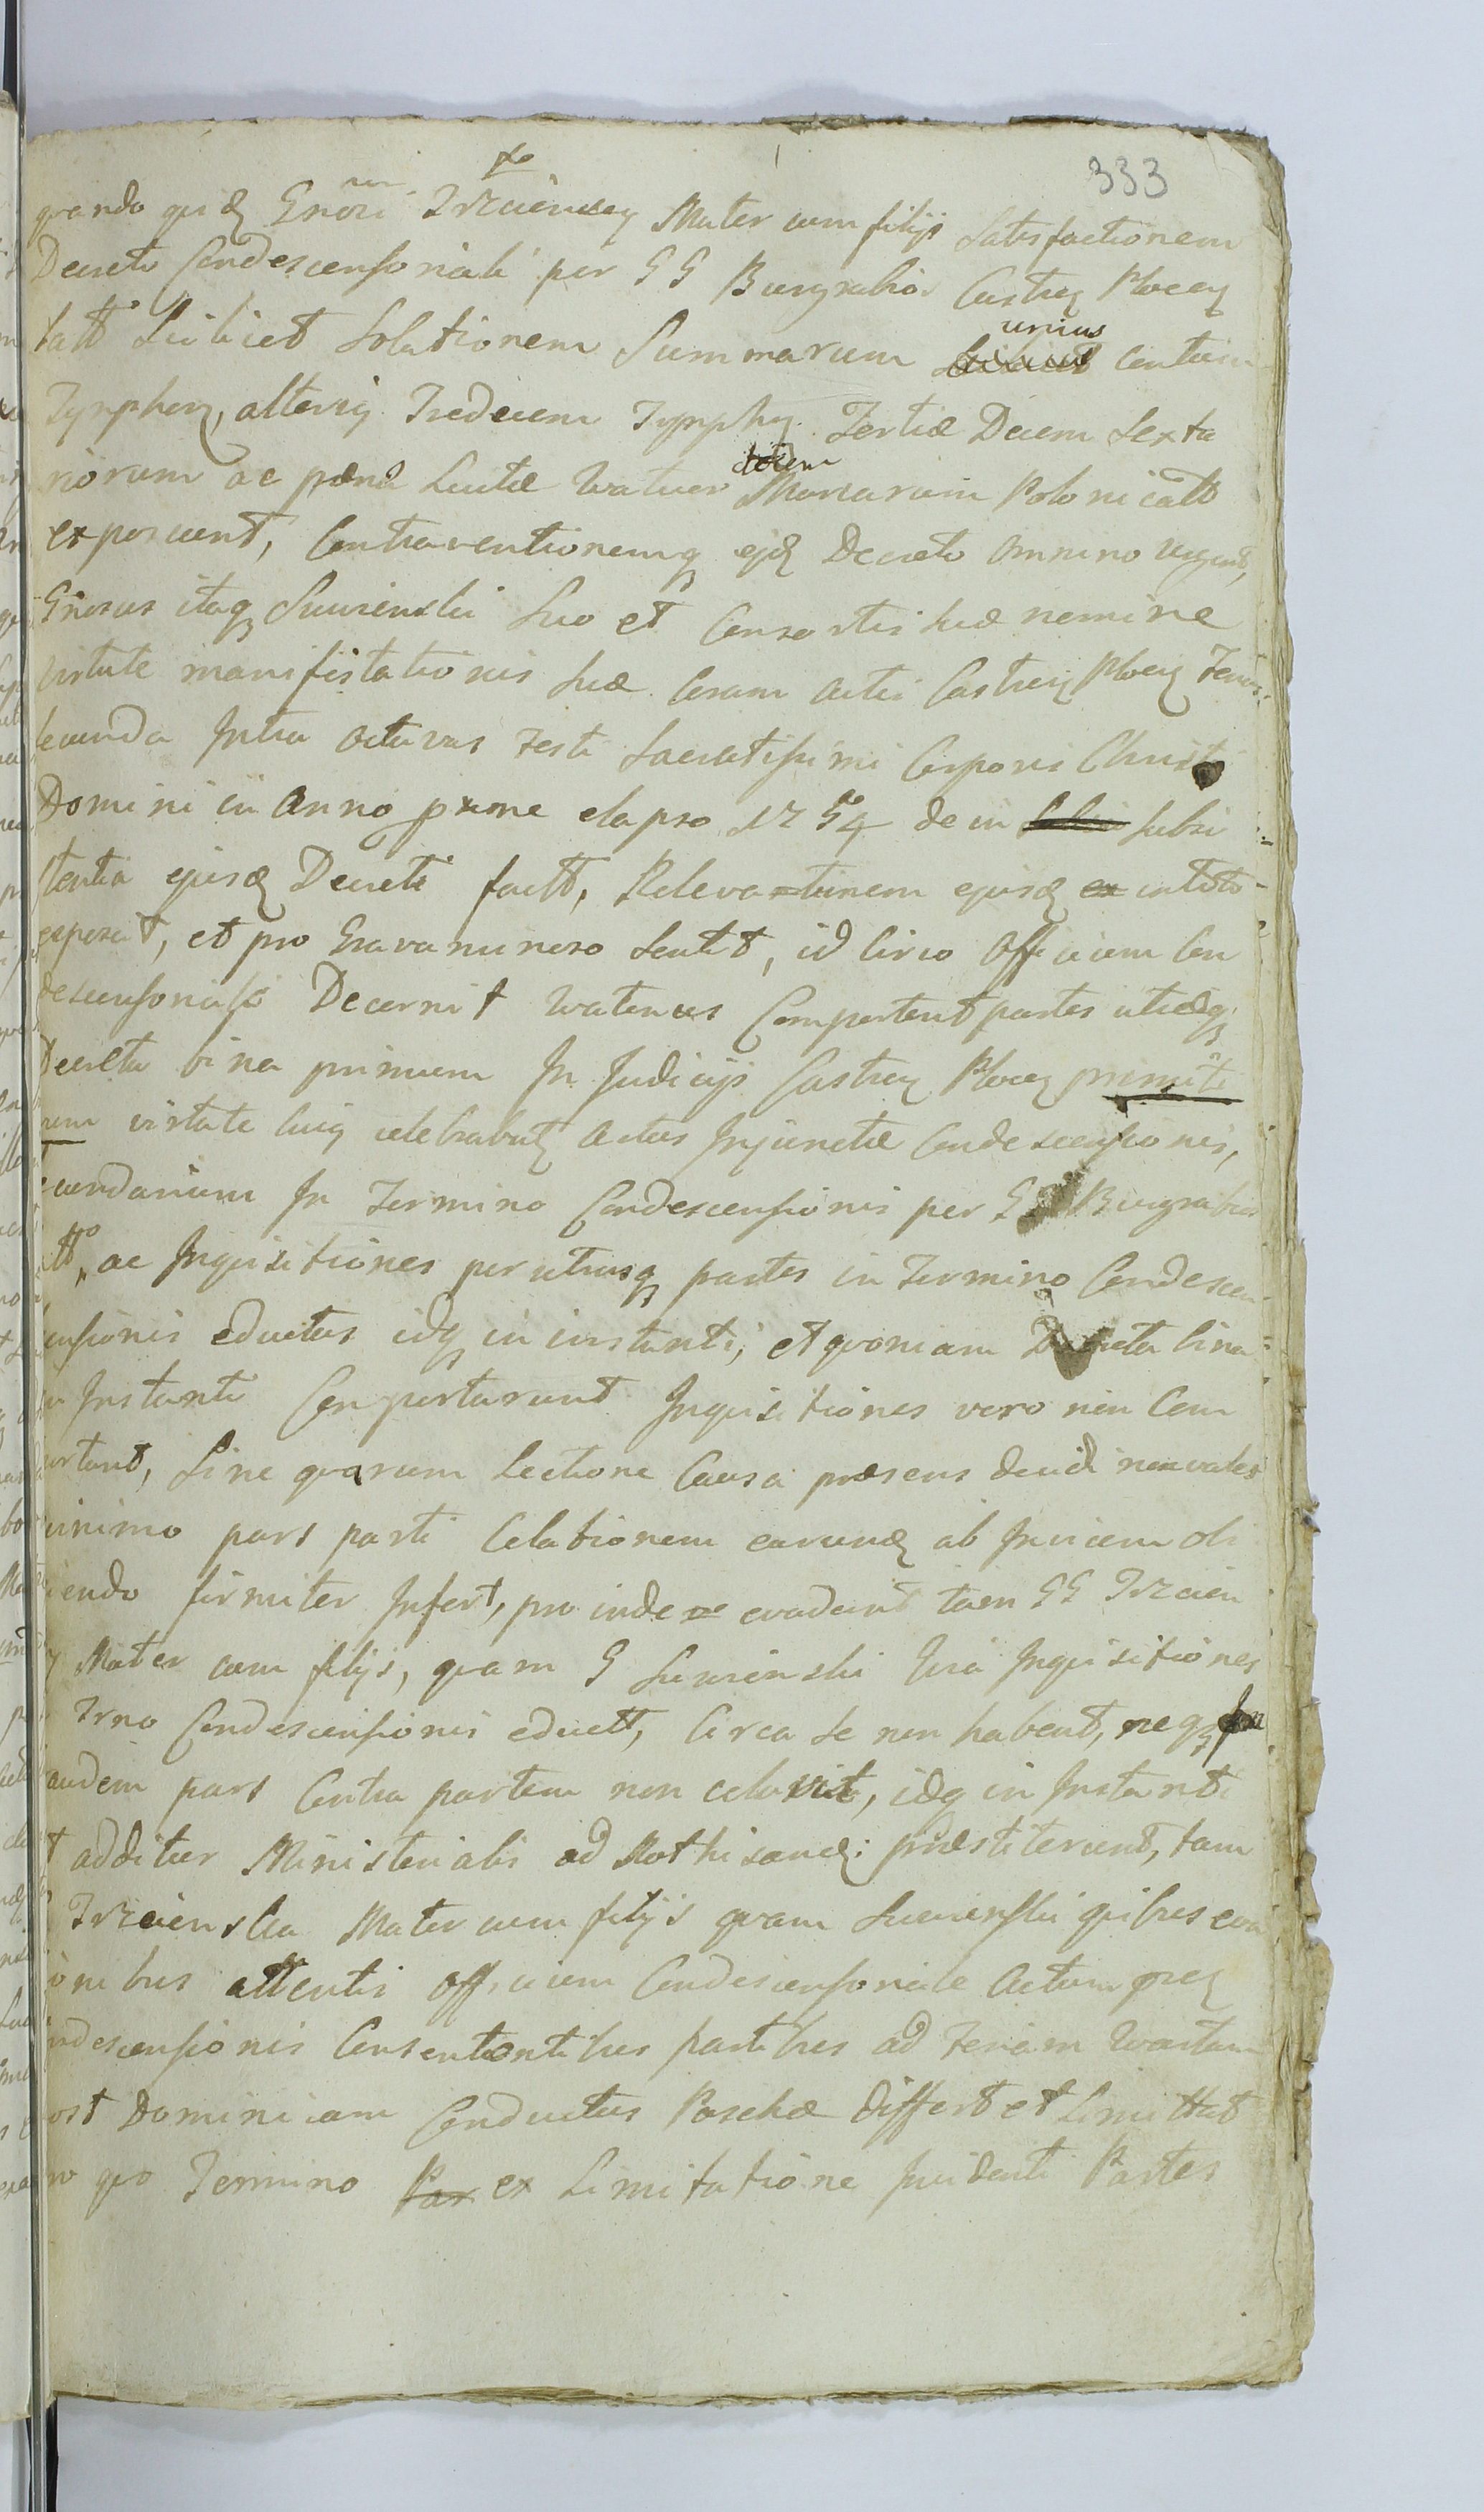 333
quando quid Gnosi Trzcienscy Mater cum filijs Satisfactionem
Decreto Condescensoriali per GG Burgrabios Castren Plocen
latt Scilicet Solutionem Summarum unius Centum
Tymphorum, alterius Tredecem Tymphorum Tertiæ Decem Sexta
riorum ac pænæ Luitæ quatuordecem Marcarum Polonicatt
exposcunt, Contraventionemq ejd Decreto omnino urgent,
Gnosus itaq Suminski Suo et Consortis suæ nomine
virtute manifestationis suæ Coram Actis Castren Plocen Feria
secunda Intra octavas Festi Sacratissimi Corporis Christi
Domini in Anno prxme elapso 1754 de in subsi
stentia ejusd Decreti factt, Relevationem ejusd in toto
exposcit, et pro Gravaminoso sentit, id Circo Officium Con
descensoriale Decernit quatenus Comportent partes utræq
Decreta bina primum In Judicijs Castren Plocen primiti
vum virtute cujus celebrabatur Actus Injunctæ Condescensionis,
secundarium In Termino Condescensionis per GG Burgrabios
latto, ac Inquisitiones per utrasq partes in Termino Condescen
censionis eductas idq in instanti, et quoniam Decreta bina
in Instanti Comportarunt Inquisitiones vero non Com
portant, Sine quarum Lectione Causa præsens decidi non valet
minimo pars parti Celationem earund ab Invicem obi
ciendo firmiter Infert, pro inde evadent tam GG Trzcien
scy Mater cum filijs, quam G Suminski Quia Inquisitiones
Trno Condescensionis eductt, Circa se non habent, neq
easdem pars Contra partem non celavit, idq in Instanti
et additur Ministerialis ad Rothisand: præstiterunt, tam
Trzcienska Mater cum filijs quam Suminski quibus eva
sionibus attentis Officium Condescensoriale Actum præs
Condescensionis Consentientibus partibus ad Feriam quartam
post Dominicam Conductus Paschæ differt et Limittat
in quo Termino ex Limitatione Incidenti Partes